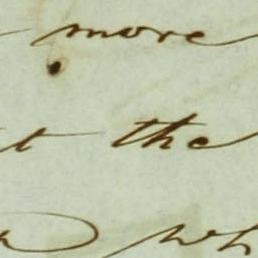 more
t the
wh